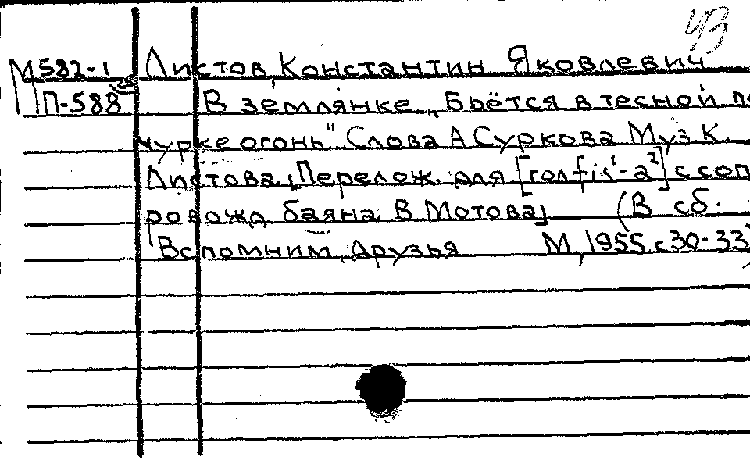 43
М582-1 Листов, Константин Яковлевич
П-588 В землянке. „Бьётся в тесной пе
чурке огонь". Слова А Суркова Муз К.
Листова. [Перелож. для [голос fis¹-a²] с соп
ровожд баяна В Мотова] (В сб.
Вспомним, друзья М, 1955, с 30-33)